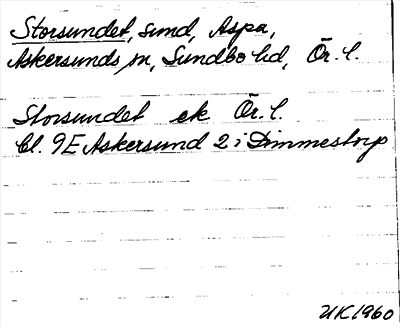 Storsundet, sund, Aspa,
Askersunds sn, Sundbo hd, Ör. l.
Storsundet ek Ör. l.
bl. 9E Askersund 2 i Dimmestorp
UK 1960